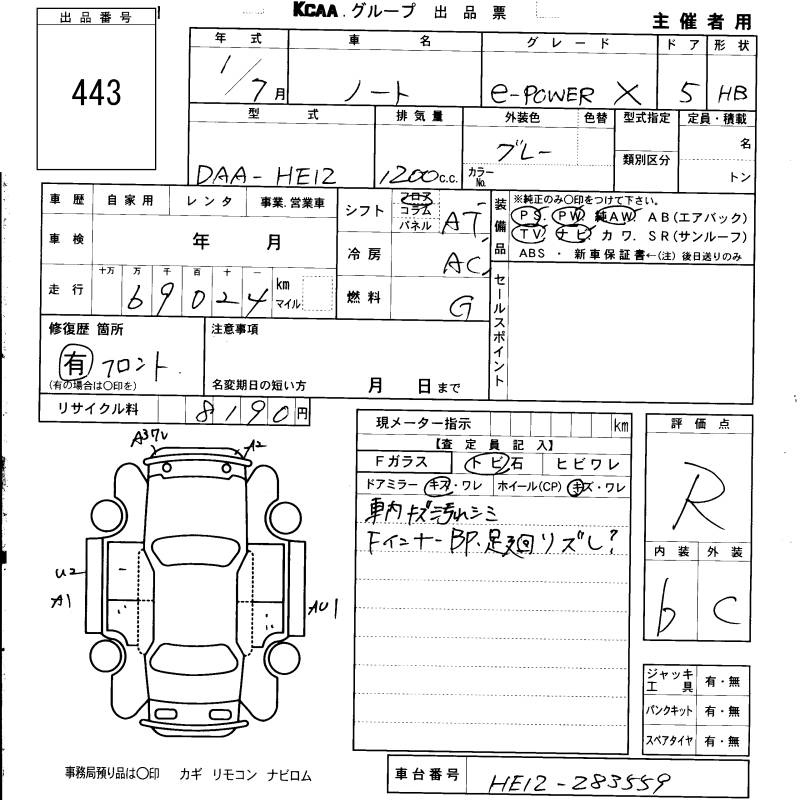 KCAA.グループ 出品票
主催者用
出品番号
443
年式 車名 グレード ドア 形状
1/7月 ノート e-POWER X 5 HB
型式 排気量 外装色 色替 型式指定 定員・積載
DAA-HE12 1200c.c. グレー カラーNo. 類別区分 名
トン
車歴 自家用 レンタ 事業.営業車
車検 年 月
走行 十万 万 千 百 十 一 km マイル
69024
シフト フロア コラム パネル AT
冷房 AC
燃料 G
装備品
※純正のみ〇印をつけて下さい。
PS. PW 純AW AB(エアバック)
TV ナビ カワ. SR(サンルーフ)
ABS ・ 新車保証書←(注)後日送りのみ
セールスポイント
修復歴 箇所
有 フロント
(有の場合は〇印を)
注意事項
名変期日の短い方 月 日まで
リサイクル料 8190円
現メーター指示 km
【査定員記入】
Fガラス トビ石 ヒビワレ
ドアミラー キズ・ワレ ホイール(CP) キズ・ワレ
車内キズ汚れシミ
Fインナー BP.足廻リズレ?
評価点
R
内装 外装
b C
A2
U2
A1
AU1
ジャッキ工具 有・無
パンクキット 有・無
スペアタイヤ 有・無
事務局預り品は〇印 カギ リモコン ナビロム
車台番号 HE12-283559